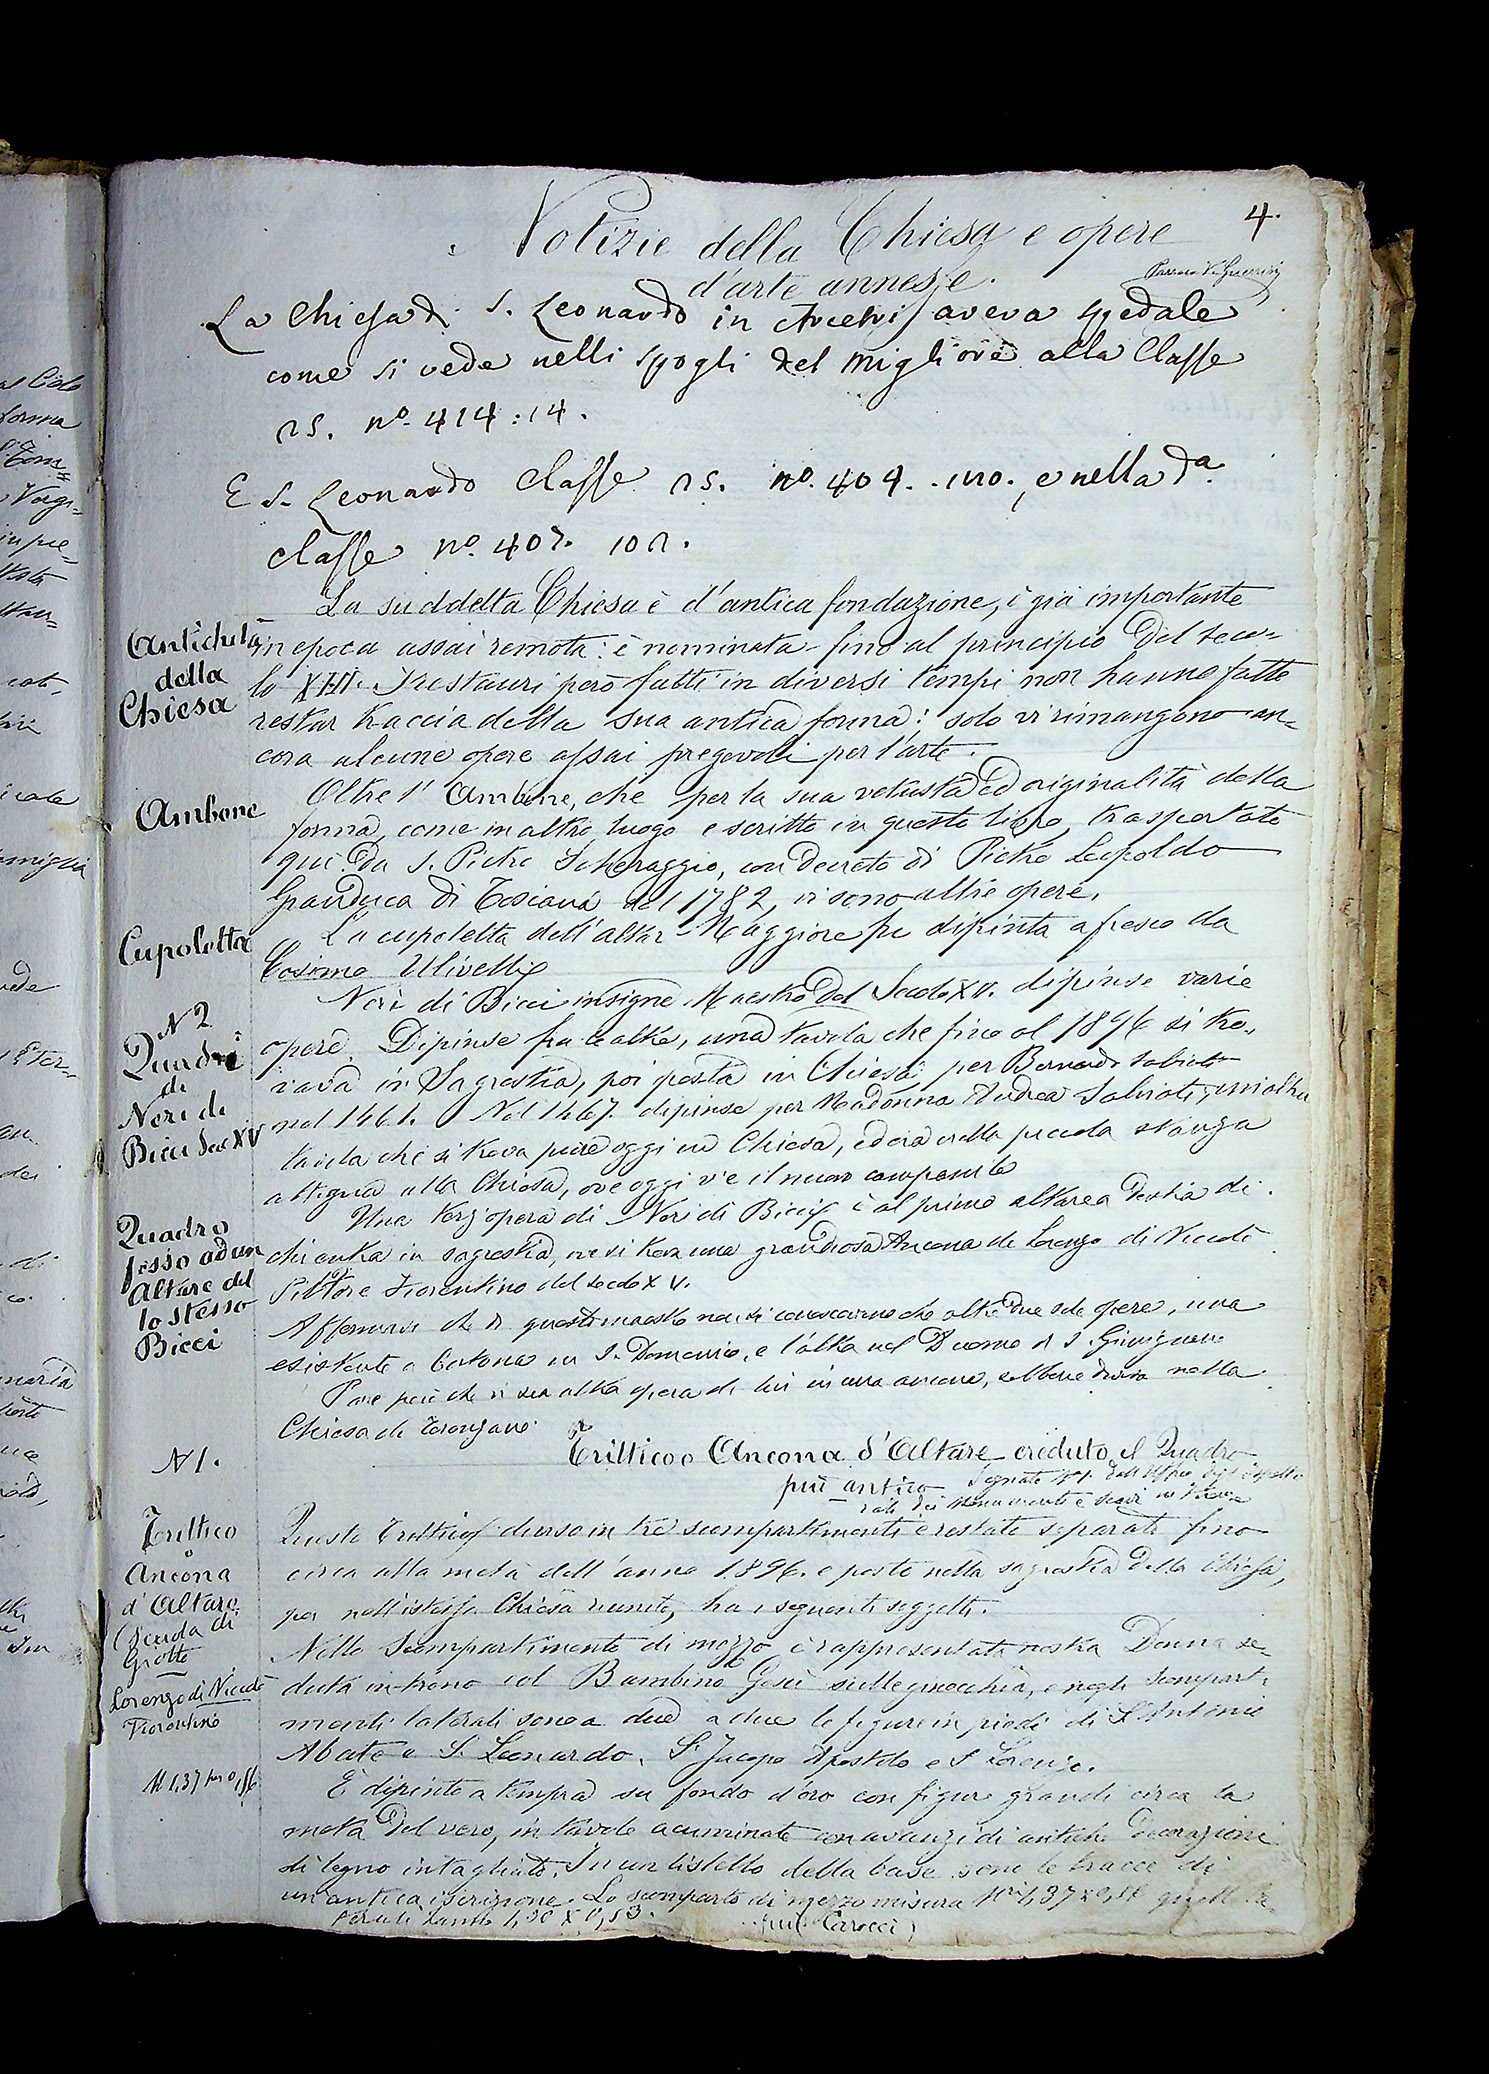 4.
Notizie della Chiesa e opere
d'arte annesse.
La Chiesa di S. Leonardo in Arcetri aveva spedale
come si vede nelli spogli del Migliore alla Classe
25. nº. 414:14.
E S. Leonardo Classe 25. nº. 404. , e nella dª.
Classe nº. 407. 102.
Antichità
della
Chiesa
La suddetta Chiesa è d'antica fondazione, e già importante
in epoca assai remota: è nominata fino al principio del seco=
lo XIII. I restauri però fatti in diversi tempi non hanno fatto
restar traccia della sua antica forma: solo vi rimangono an=
cora alcune opere assai pregevoli per l'arte.
Ambone
Oltre l'Ambone, che per la sua vetustà ed originalità della
forma, come in altro luogo è scritto in questo libro, trasportato
quì da S. Pietro Scheraggio, con decreto di Pietro Leopoldo
GranDuca di Toscana del 1782, vi sono altre opere.
Cupoletta
La cupoletta dell'altar Maggiore fu dipinta a fresco da
Cosimo Ulivelli
N 2
Quadri
di
Neri di
Bicci Sec XV
Neri di Bicci insigne Maestro del Secolo XV. dipinse varie
opere. Dipinse fra le altre, una tavola che fino al 1896 si tro=
vava in Sagrestia, poi posta in Chiesa per Bernardo Salviati
nel 1461. Nel 1467. dipinse per Madonna Andrea Salviati, un'altra
tavola che si trova pure oggi in Chiesa, ed era nella piccola stanza
attigua alla Chiesa, ove oggi v'è il nuovo campanile
Quadro
fisso ad un
Altare del
lo stesso
Bicci
Una terz'opera di Neri di Bicci è al primo altare a destra di
chi entra in sagrestia, ove si trova una grandiosa Ancona di Lorenzo di Niccolò
Pittore Fiorentino del secolo XV.
Affermasi che di questo maestro non si conoscano che altre due sole opere, una
esistente a Cortona in S. Domenico, e l'altra nel Duomo di S. Gimignano
Pare però che vi sia altra opera di lui in una ancona, sebbene divisa nella
Chiesa di Terenzano.
N 1.
Trittico o Ancona d'Altare creduto il Quadro
più antico
Segnato Nº 1. dall'Ufficio
dei Monumenti e Scavi in
Trittico
o
Ancona
d'Altare
(Scuola di
Giotto
Lorenzo di Niccolò
Fiorentino
M 1,37 per 0,86
Questo Trittico diviso in tre scompartimenti è restato separato fino
circa alla metà dell'anno 1896. e posto nella sagrestia della Chiesa,
poi nell'istessa Chiesa riunito, ha i seguenti soggetti.
Nello Scompartimento di mezzo è rappresentata nostra Donna se=
duta in trono col Bambino Gesù sulle ginocchia, e negli scomparti
menti laterali sono a due a due le figure in piedi di S. Antonio
Abate e S. Leonardo. S. Jacopo Apostolo e S. Lorenzo.
È dipinto a tempra su fondo d'oro con figure grandi circa la
metà del vero, in tavole acuminate con avanzi di antiche decorazioni
di legno intagliato. In un listello della base sono le tracce di
un antica iscrizione. Lo scomparto di mezzo misura 1,37 x 0,86 quelli la=
terali 1,30 X 0,53.
Carocci)